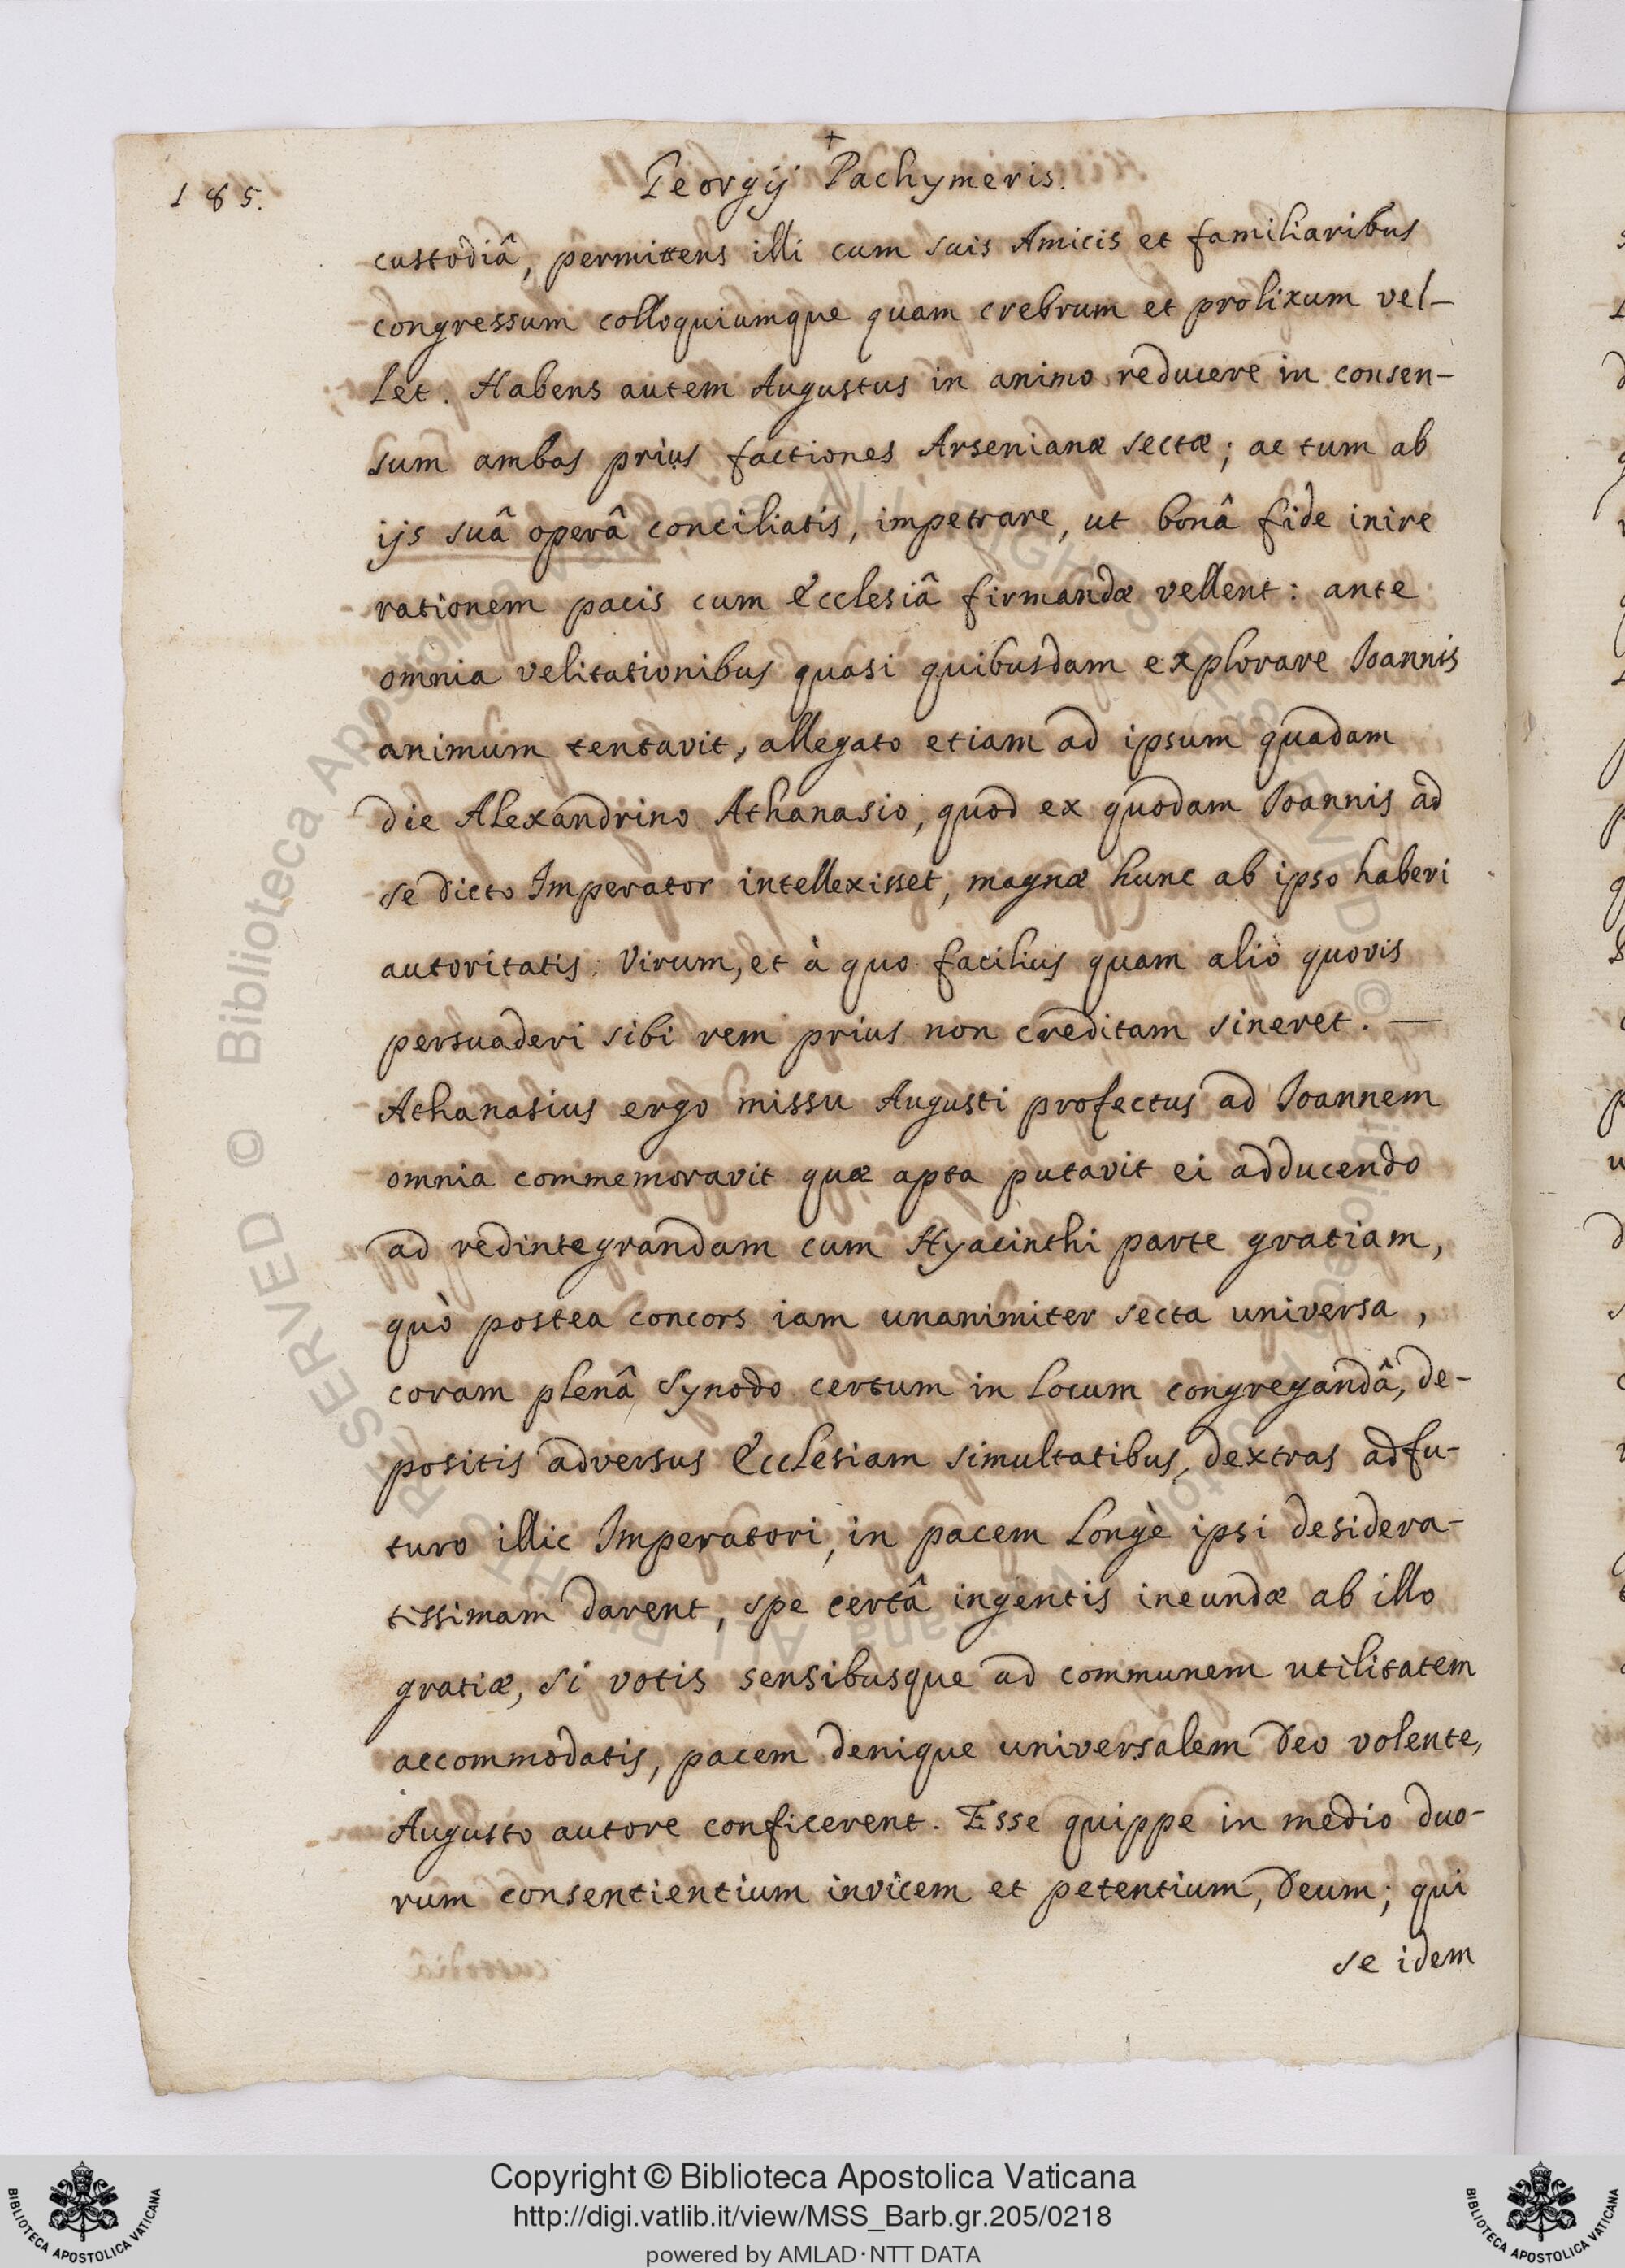 185.
+
Georgij Pachymeris.
custodiâ, permittens illi cum suis Amicis et familiaribus
congressum colloquiumque quam crebrum et prolixum vel-
let. Habens autem Augustus in animo reducere in consen-
sum ambas prius factiones Arsenianæ sectæ; ac tum ab
ijs suâ operâ conciliatis, impetrare, ut bonâ fide inire
rationem pacis cum Ecclesiâ firmandæ vellent: ante
omnia velitationibus quasi quibusdam explorare Joannis
animum tentavit, allegato etiam ad ipsum quadam
die Alexandrino Athanasio, quod ex quodam Joannis ad
se dicto Imperator intellexisset, magnæ hunc ab ipso haberi
autoritatis Virum, et à quo facilius quam alio quovis
persuaderi sibi rem prius non creditam sineret. —
Athanasius ergo missu Augusti profectus ad Joannem
omnia commemoravit quæ apta putavit ei adducendo
ad redintegrandam cum Hyacinthi parte gratiam,
quò postea concors iam unanimiter secta universa,
coram plenâ Synodo certum in locum congregandâ, de-
positis adversus Ecclesiam simultatibus, dextras adfu-
turo illic Imperatori, in pacem longè ipsi desidera-
tissimam darent, spe certâ ingentis ineundæ ab illo
gratiæ, si votis sensibusque ad communem utilitatem
accommodatis, pacem denique universalem Deo volente,
Augusto autore conficerent. Esse quippe in medio duo-
rum consentientium invicem et petentium, Deum; qui
se idem
Copyright © Biblioteca Apostolica Vaticana
http://digi.vatlib.it/view/MSS_Barb.gr.205/0218
powered by AMLAD·NTT DATA
BIBLIOTECA APOSTOLICA VATICANA
BIBLIOTECA APOSTOLICA VATICANA